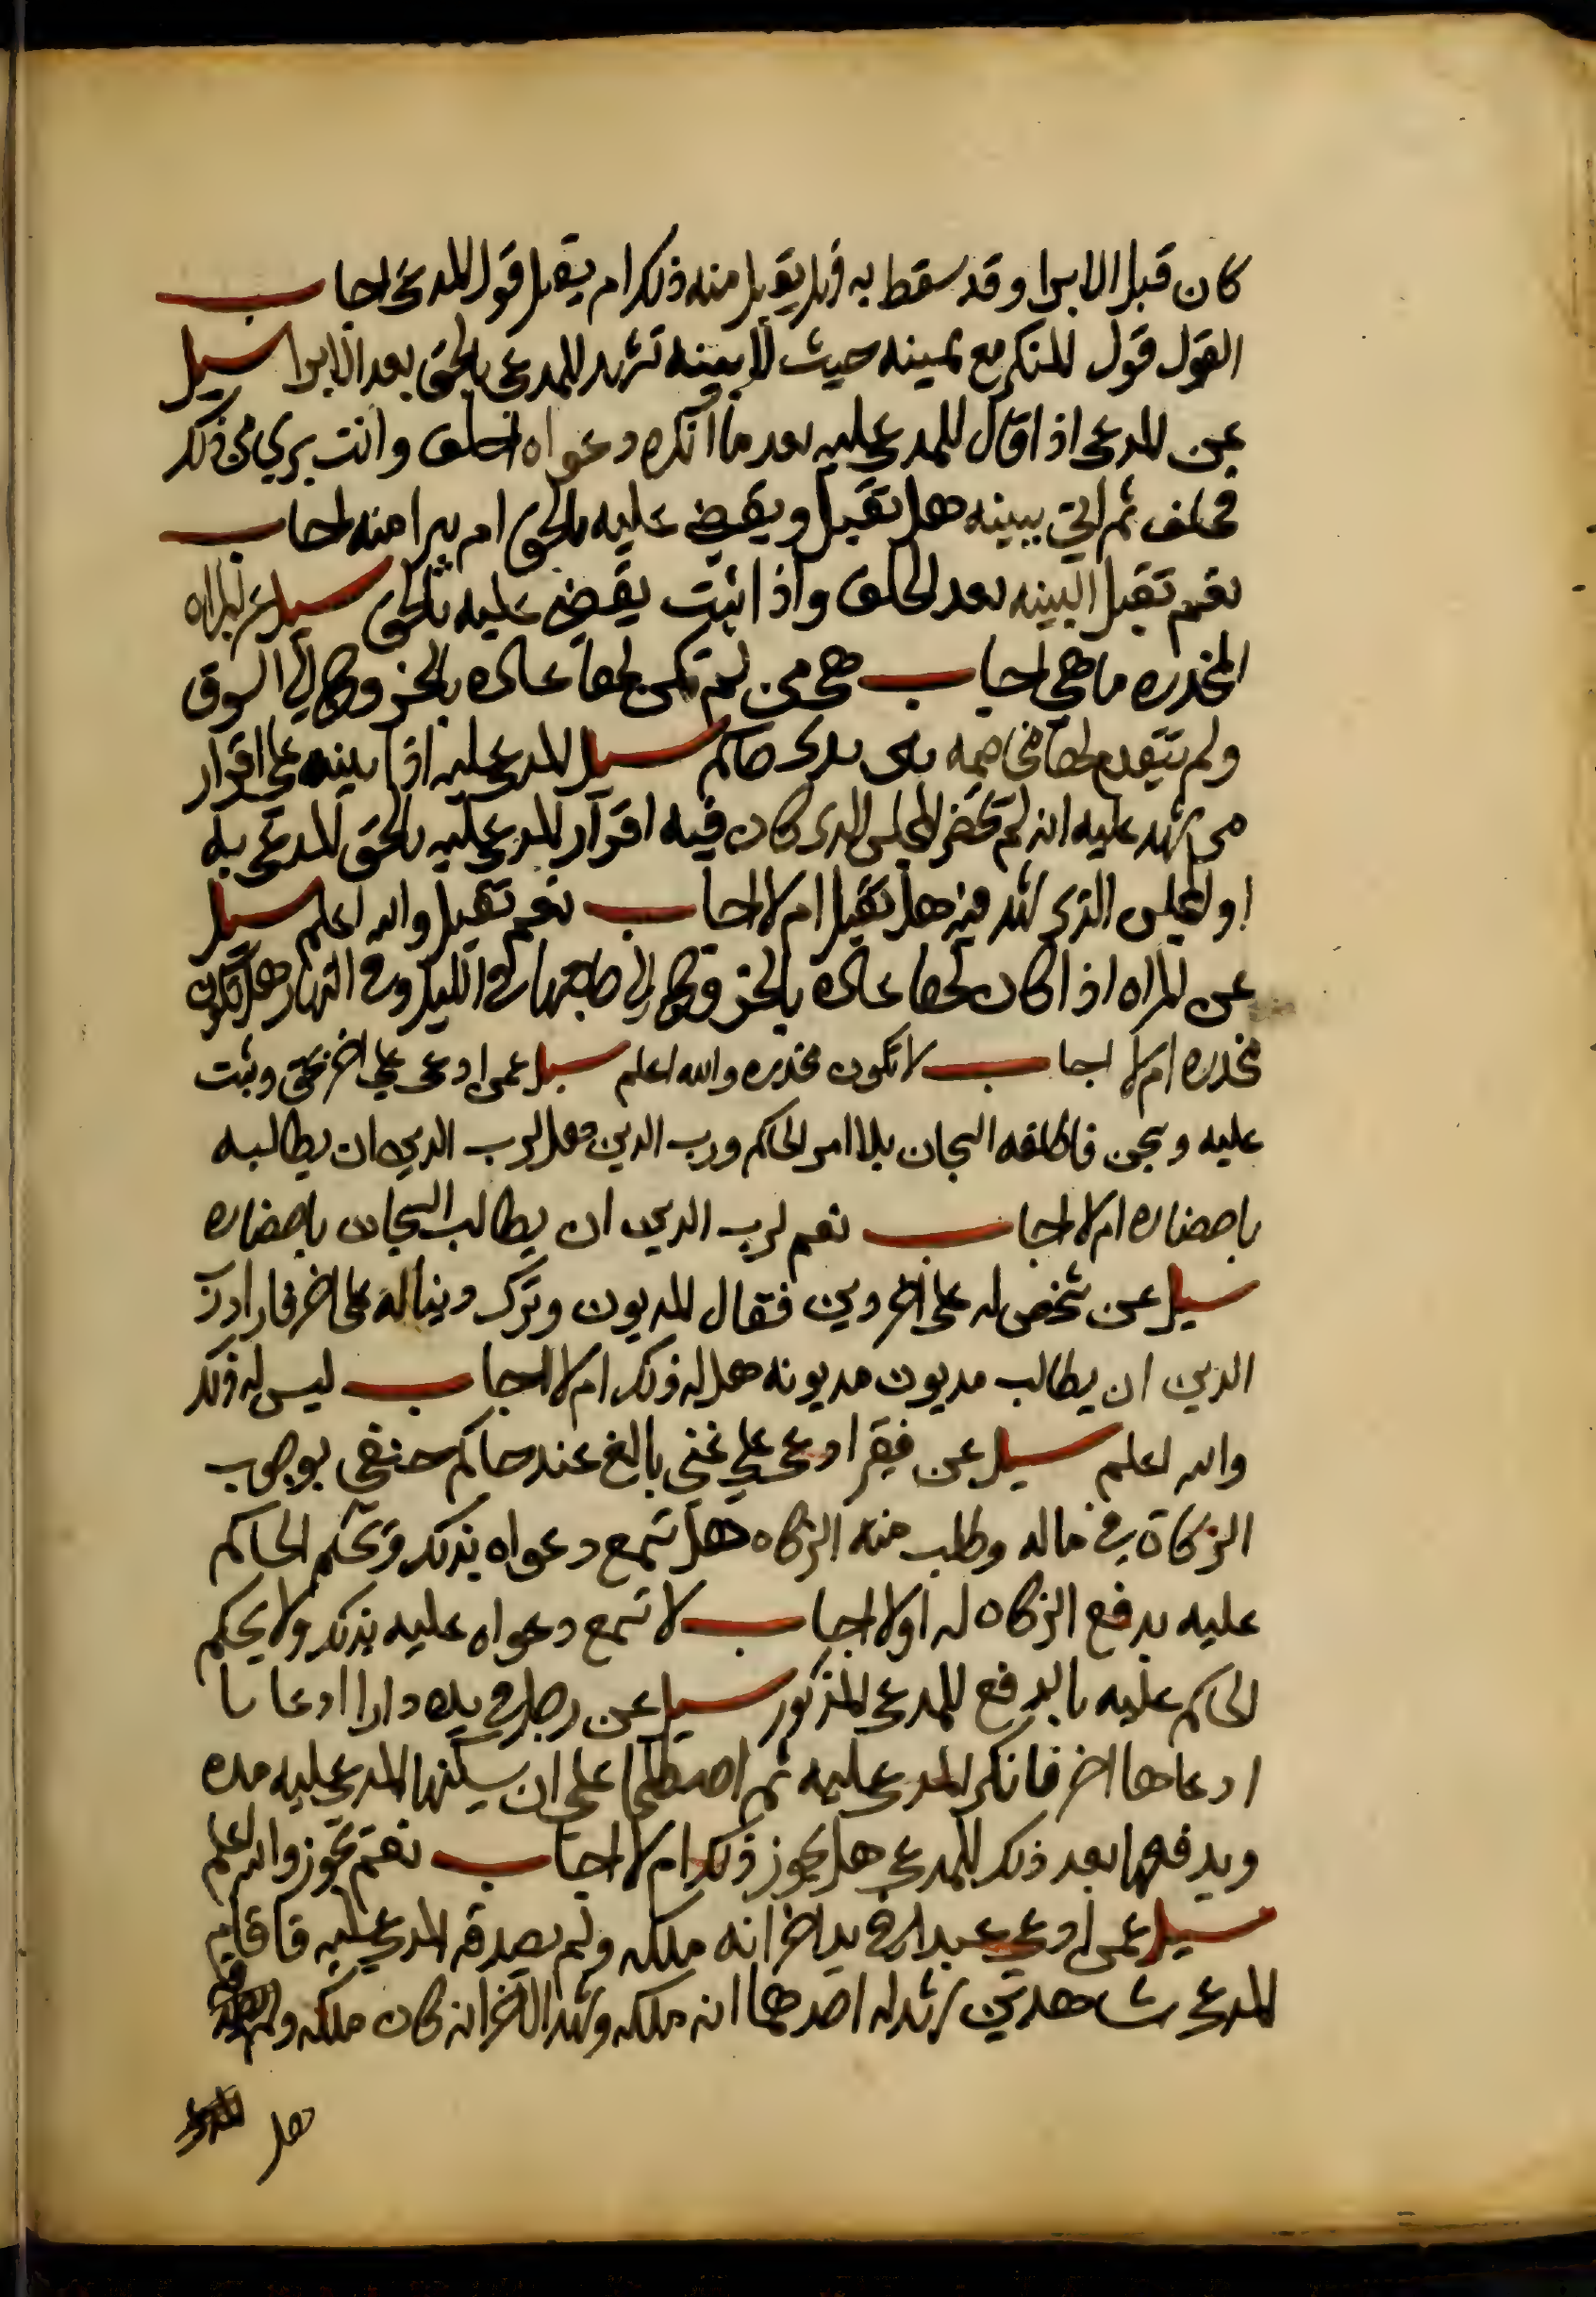 كان قبل الابرا وقد سقط به فهل يقبل منه ذلك ام يقبل قول المدعي اجاب
القول قول المنكر مع يمينه حيث لا بينه تشهد للمدعي بالحق بعد الابرا سيل
عن المدعي اذا قال للمدعي عليه بعد ما انكر دعواه احلف وانت بري من ذلك
فحلف ثم اتي ببينه هل تقبل ويقضي عليه بالحق ام يبرا منه اجاب
نعم تقبل البينه بعد الحلف واذا ثبت يقضي عليه بالحق سيل عن المراه
المخدره ما هي اجاب هي من لم تكن لها عاده بالخروج الي السوق
ولم يتقدم لها مخاصمه بين يدي حاكم سيل المدعي عليه اذا بينه علي اقرار
من شهد عليه انه لم يحضر المجلس الذي كان فيه اقرار المدعي عليه بالحق المدعي به
او المجلس الذي شهد فيه هل تقبل ام لا اجاب نعم تقبل والله اعلم سيل
عن المراه اذا كان لها عاده بالخروج الي حاجتها في الليل وفي النهار هل تكون
مخدره ام لا اجاب لا تكون مخدره والله اعلم سيل عمن ادعي علي اخر بحق وثبت
عليه وسجن فاطلقه السجان بلا امر الحاكم ورب الدين فهل لرب الدين ان يطالبه
باحضاره ام لا اجاب نعم لرب الدين ان يطالب السجان باحضاره
سيل عن شخص له علي اخر دين فقال المديون وترك دينا له علي اخر فاراد رب
الدين ان يطالب مديون مديونه هل له ذلك ام لا اجاب ليس له ذلك
والله اعلم سيل عن فقير ادعي علي غني بالغ عند حاكم حنفي بوجوب
الزكاة في ماله وطلب منه الزكاه هل تسمع دعواه بذلك ويحكم الحاكم
عليه بدفع الزكاه له اولا اجاب لا تسمع دعواه عليه بذلك ولا يحكم
الحاكم عليه بالدفع للمدعي المذكور سيل عن رجل في يده دارا
ادعاها اخر فانكر المدعي عليه ثم اصطلحا علي ان يسكنها المدعي عليه مده
ويدفعها بعد ذلك للمدعي هل يجوز ذلك ام لا اجاب نعم يجوز والله اعلم
سيل عمن ادعي عبدا في يد اخر انه ملكه ولم يصدقه المدعي عليه فاقام
المدعي شاهدين شهد له احدهما انه ملكه وشهد الاخر انه كان ملكه
هل